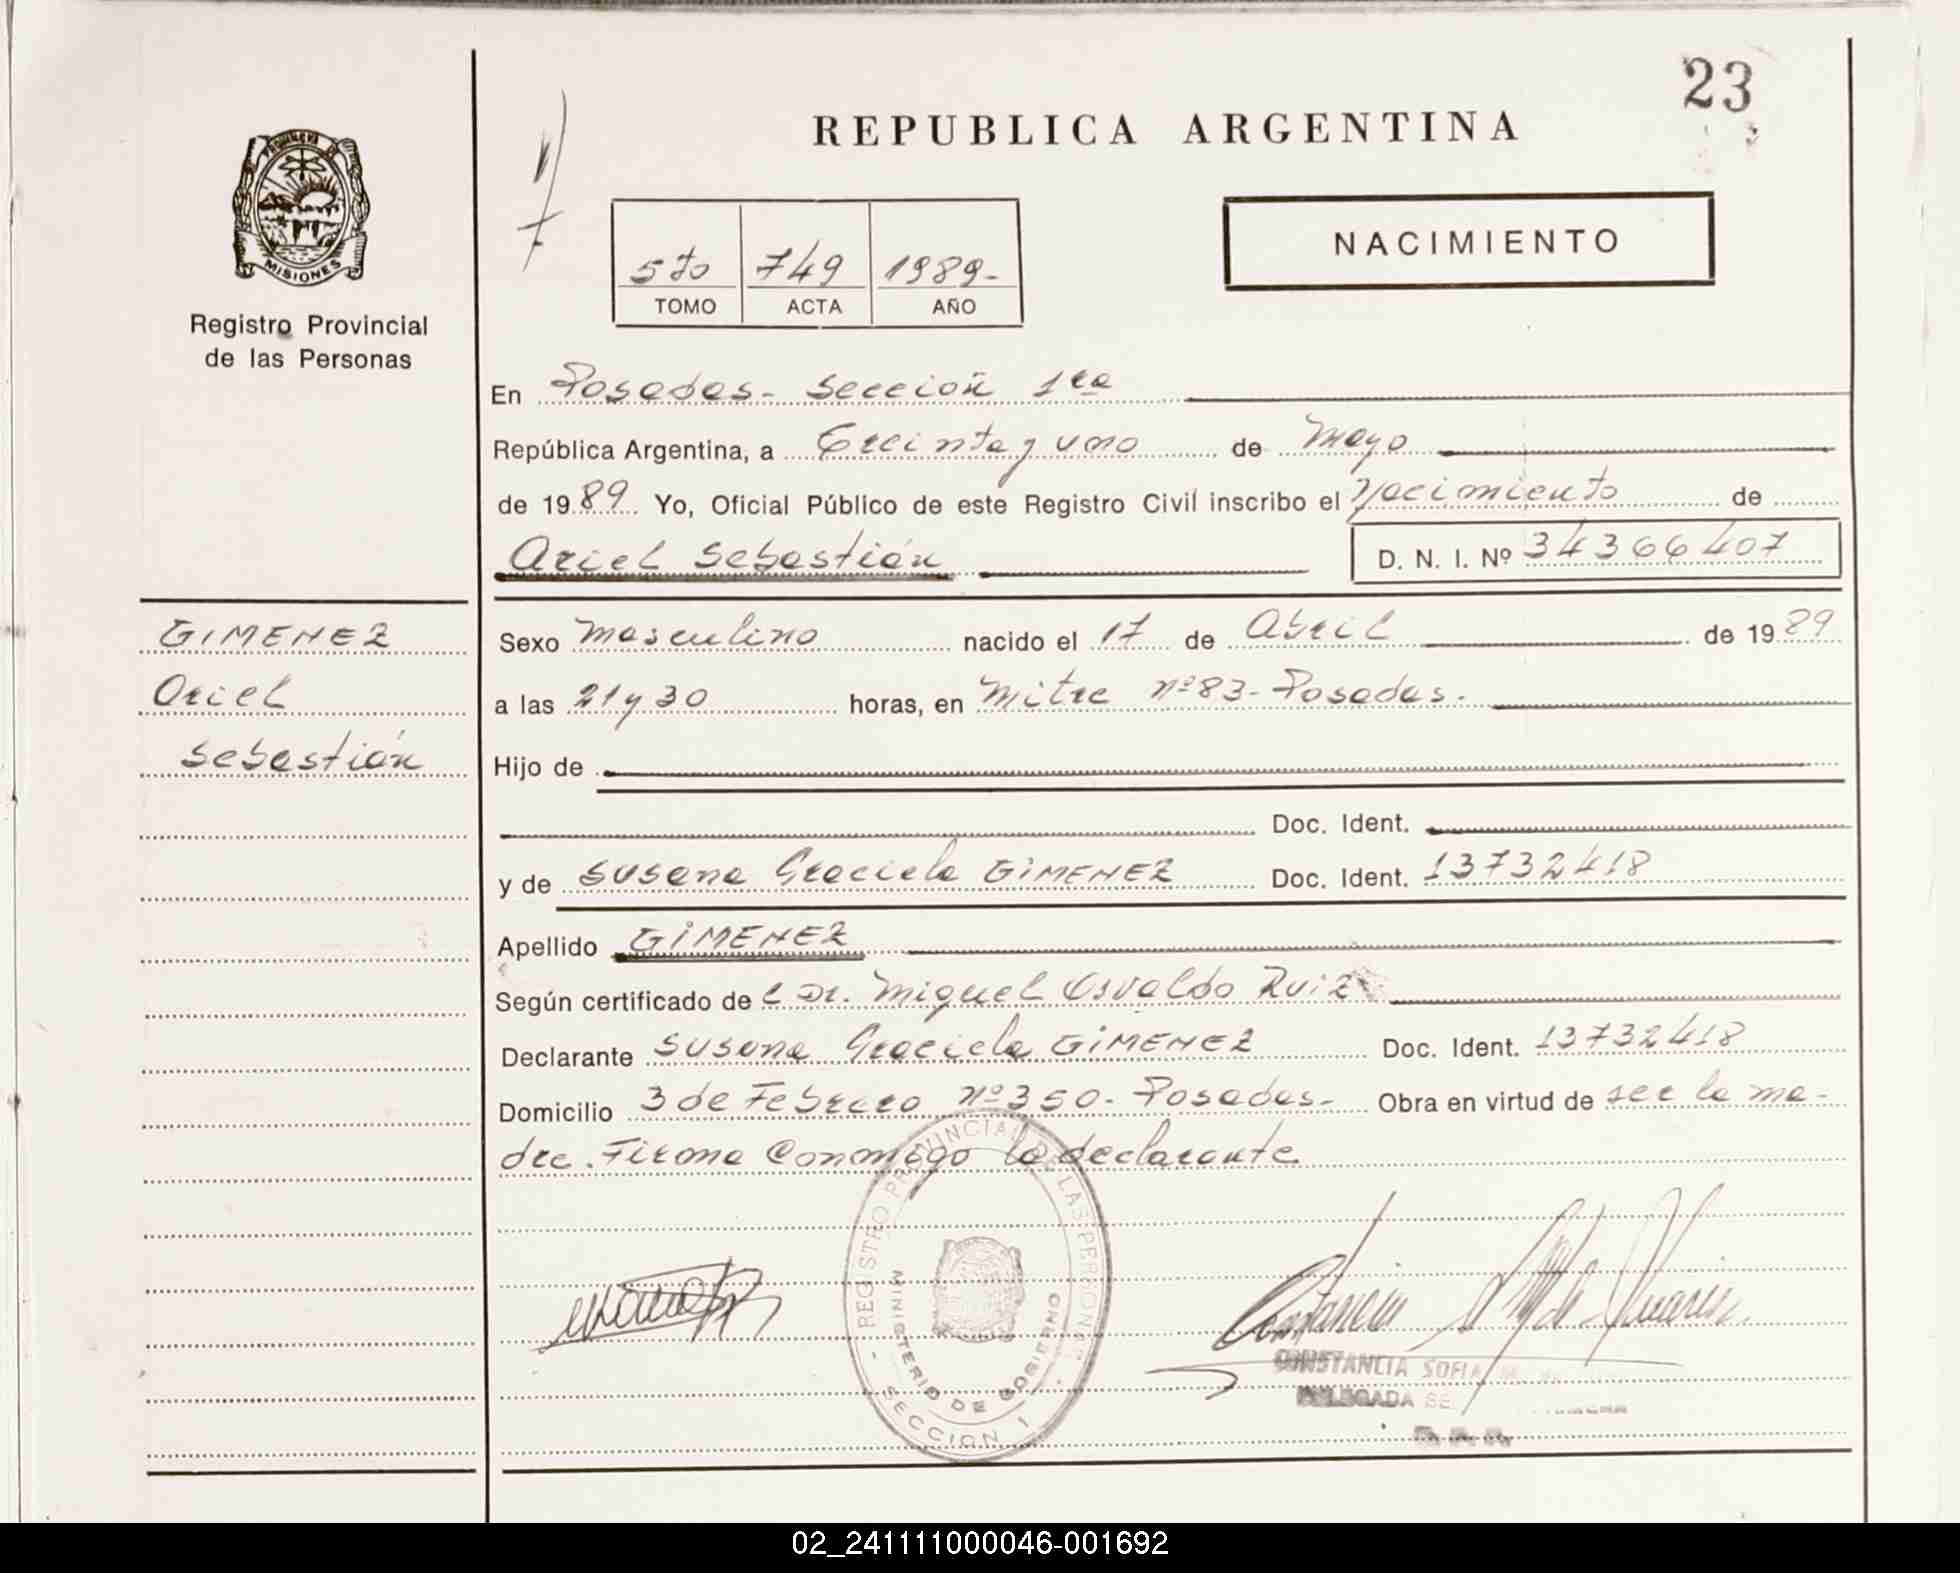 23
REPUBLICA ARGENTINA
NACIMIENTO
5to 749 1989-
TOMO ACTA AÑO
MISIONES
Registro Provincial
de las Personas
GIMENEZ
Ariel
Sebastián
En Posadas - Sección 1ra
República Argentina, a Treinta y uno de Mayo
de 1989 Yo, Oficial Público de este Registro Civil inscribo el Nacimiento de
Ariel Sebastián D. N. I. Nº 34366407
Sexo Masculino nacido el 17 de Abril de 1989
a las 21 y 30 horas, en Mitre nº 83 - Posadas.
Hijo de
Doc. Ident.
y de Susana Graciela GIMENEZ Doc. Ident. 13732418
Apellido GIMENEZ
Según certificado de l Dr. Miguel Osvaldo Ruiz
Declarante Susana Graciela GIMENEZ Doc. Ident. 13732418
Domicilio 3 de Febrero nº 350 - Posadas - Obra en virtud de ser la ma-
dre. Firma Conmigo la declarante
REGISTRO PROVINCIAL DE LAS PERSONAS
MINISTERIO DE GOBIERNO
- SECCION 1 -
CONSTANCIA SOFIA
DELEGADA SE
02_241111000046-001692